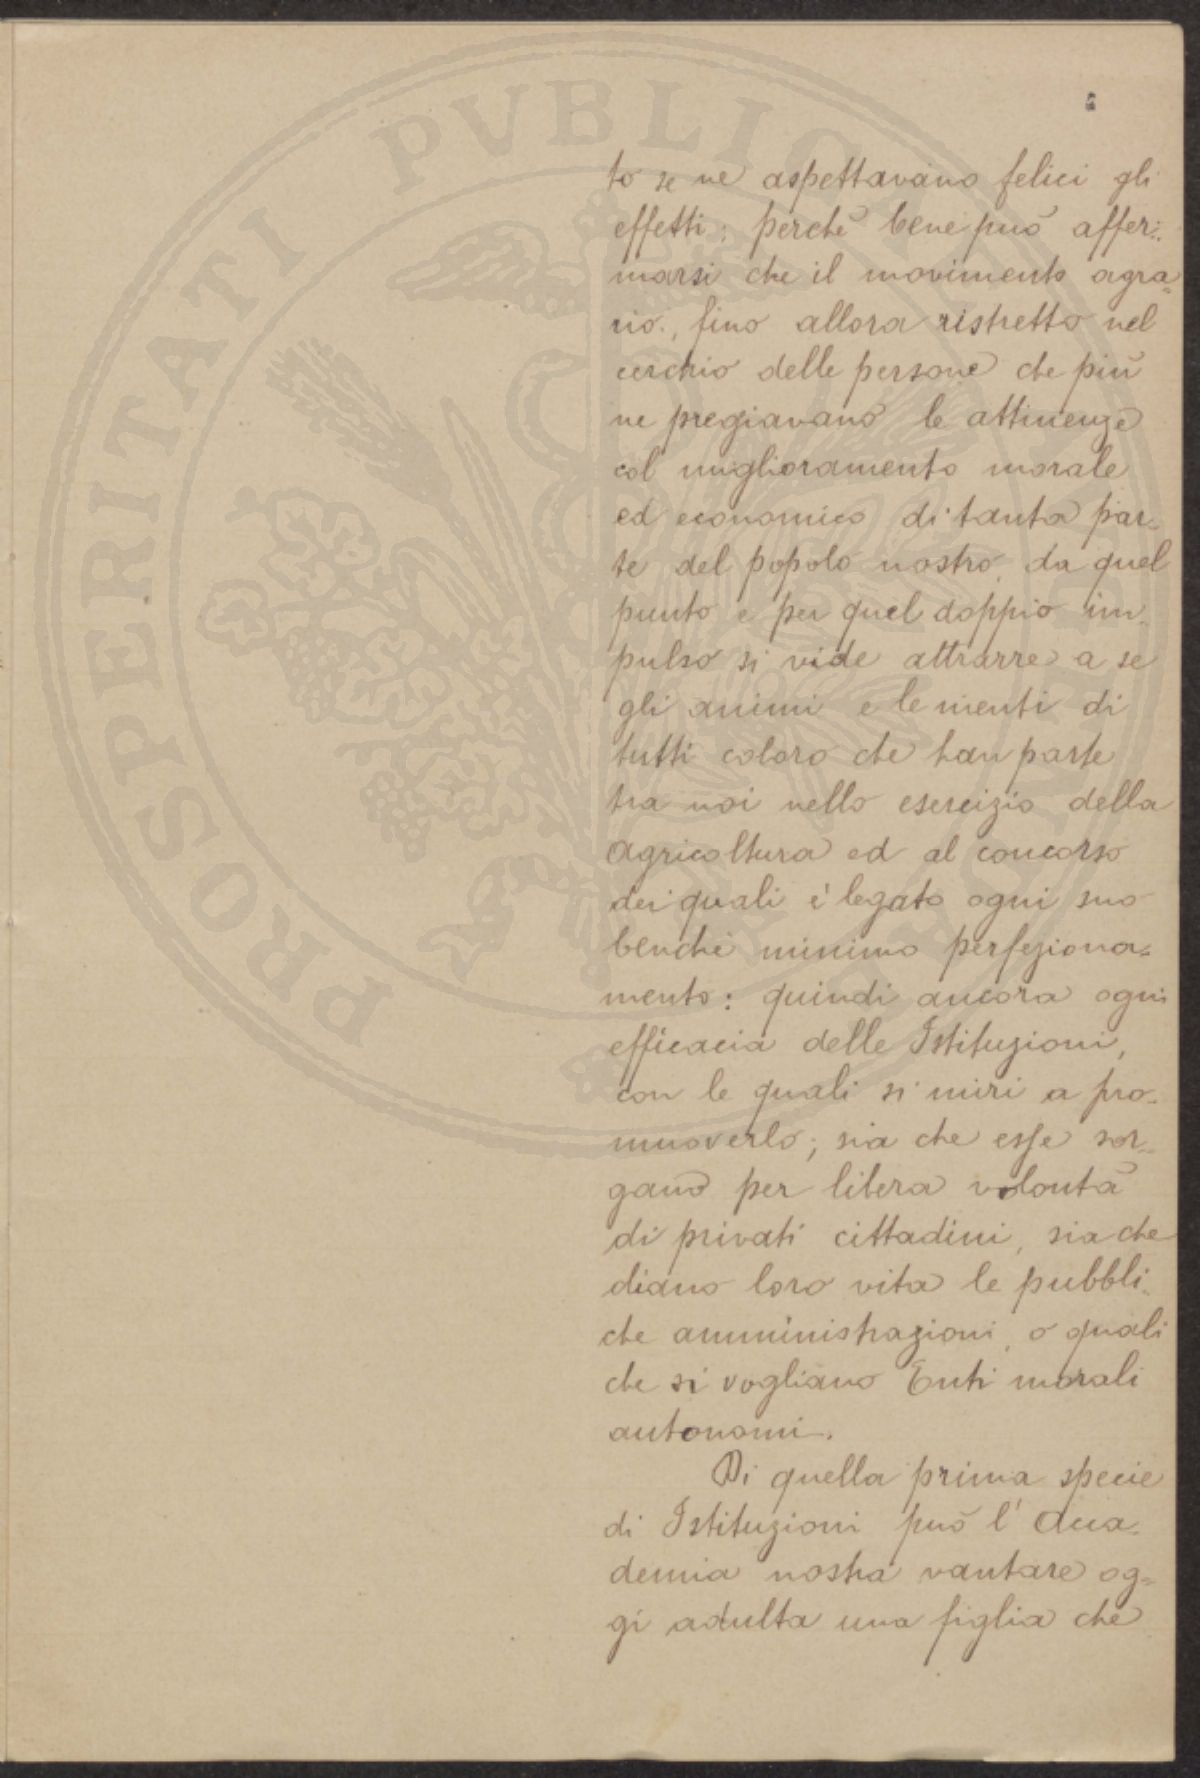 PROSPERITATI PVBLIC
to se ne aspettavano felici gli
effetti; perchè bene può affer=
marsi che il movimento agra=
rio, fino allora ristretto nel
cerchio delle persone che più
ne pregiavano le attinenze
col miglioramento morale
ed economico di tanta par=
te del popolo nostro, da quel
punto e per quel doppio im=
pulso si vide attrarre a se
gli animi e le menti di
tutti coloro che han parte
tra noi nello esercizio della
agricoltura ed al concorso
dei quali è legato ogni suo
benchè minimo perfeziona=
mento: quindi ancora ogni
efficacia delle Istituzioni,
con le quali si miri a pro=
muoverlo; sia che esse sor=
gano per libera volontà
di privati cittadini, sia che
diano loro vita le pubbli=
che amministrazioni, o quali
che si vogliano Enti morali
autonomi.
Di quella prima specie
di Istituzioni può l'Acca=
demia nostra vantare og=
gi adulta una figlia che